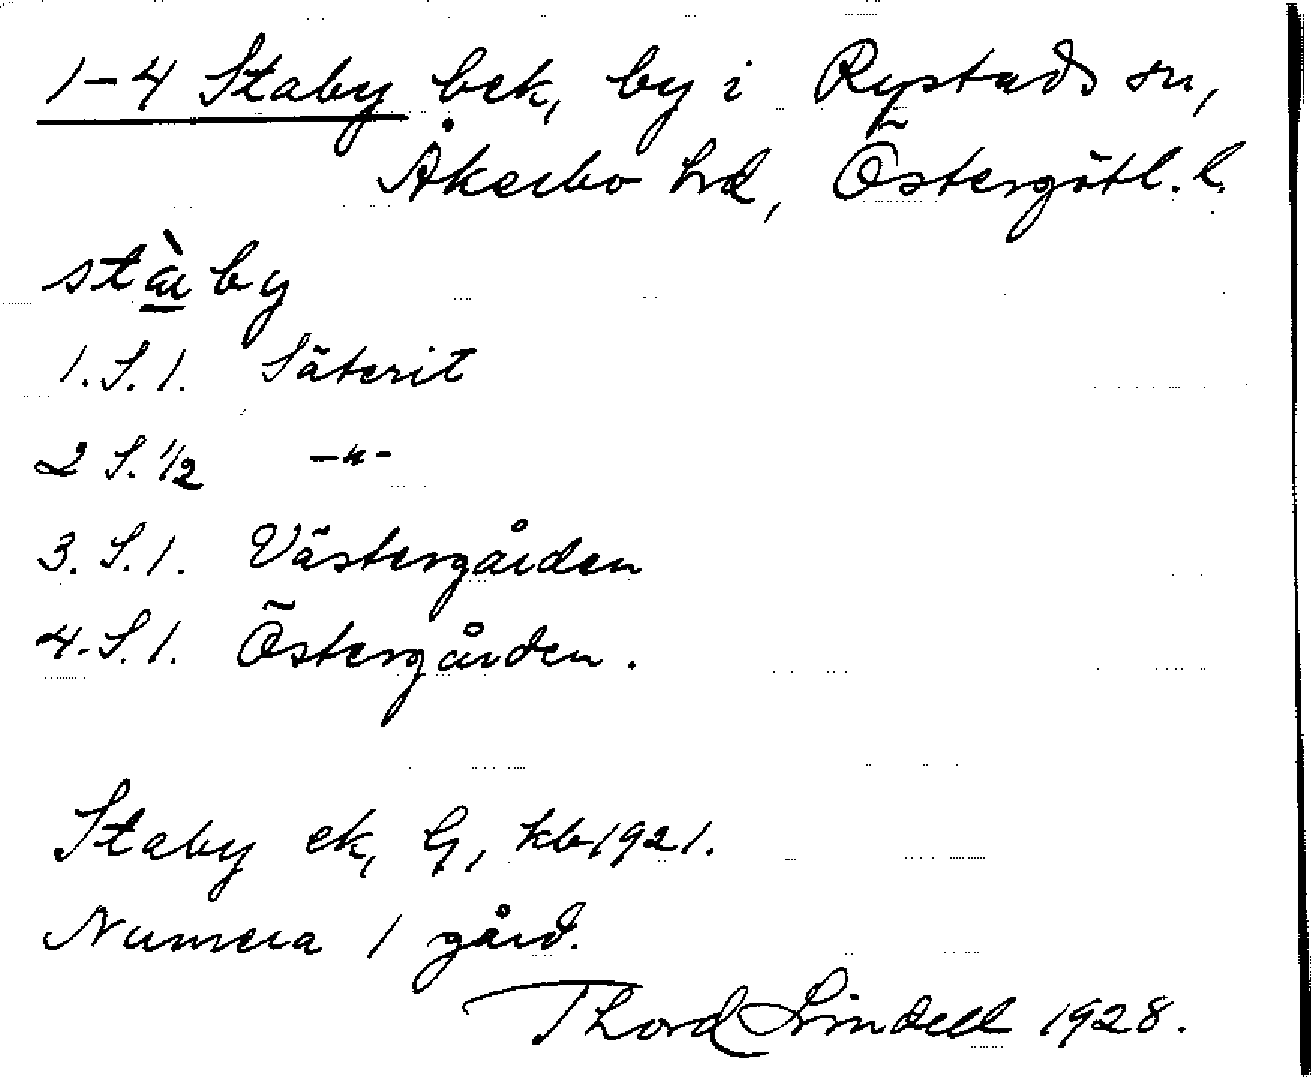 1-4 Staby bek, by i Rystads sn,
Åkerbo hd, Östergötl. l.
stàby
1. S. 1. Säterit
2 S. 1/2 -"-
3. S. 1. Västergården
4. S. 1. Östergården.
Staby ek, G, kb 1921.
Numera 1 gård.
Thord Lindell 1928.